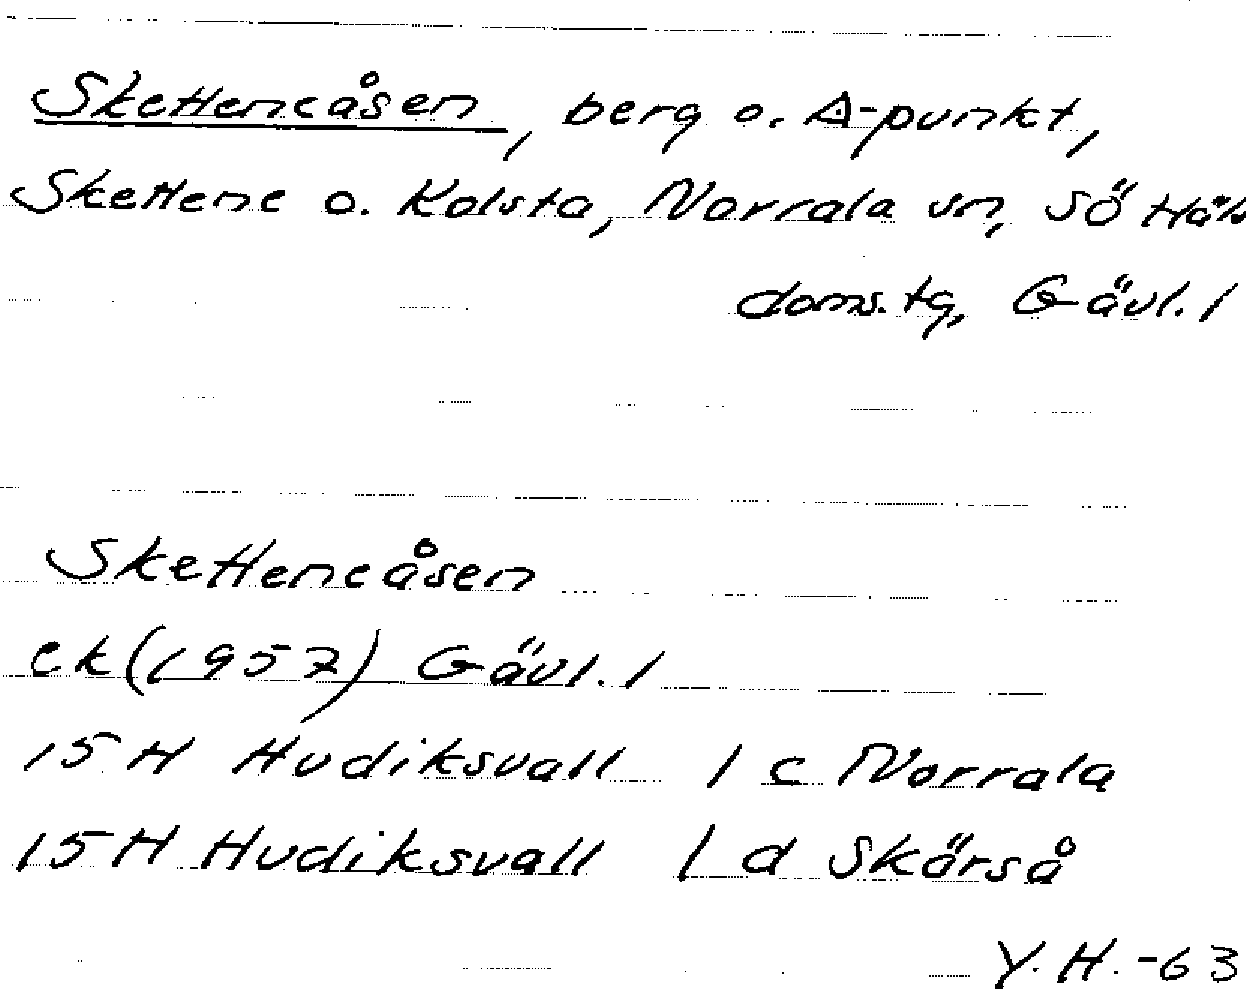 Sketteneåsen, berg o. Δ-punkt,
Skettene o. Kolsta, Norrala sn, Sö Häls
doms.tg, Gävl. l
Sketteneåsen
ek (1957) Gävl. l
15 H Hudiksvall 1 c Norrala
15 H Hudiksvall 1 d Skärså
Y. H. -63